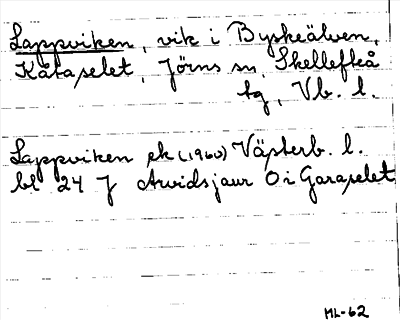 Lappviken, vik i Byskeälven,
Kåtaselet, Jörns sn, Skellefteå
tg, Vb. l.
Lappviken ek (1960) Västerb. l.
bl 24 J Arvidsjaur O i Garaselet
ML-62